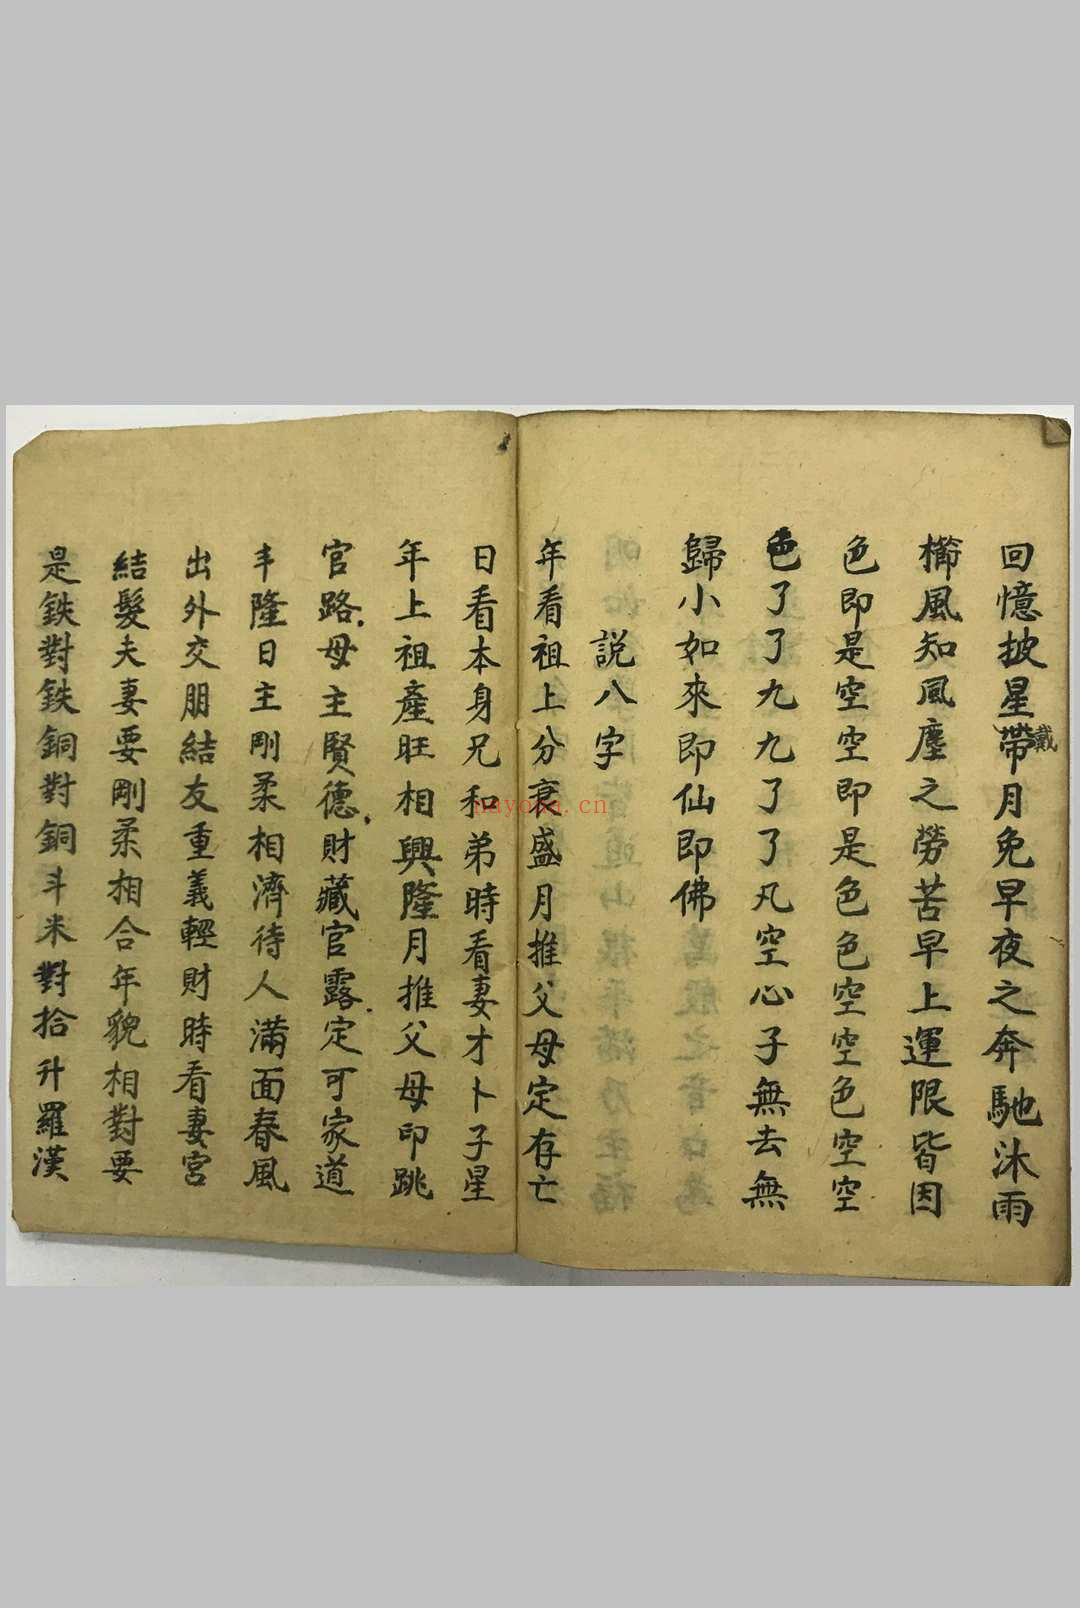 回憶披星帶月免早夜之奔馳沐雨
戴
櫛風知風塵之勞苦早上運限皆因
色即是空空即是色色空空色空空
色了了九九了了凡空心子無去無
歸小如來即仙即佛
説八字
年看祖上分衰盛月推父母定存亡
日看本身兄和弟時看妻才卜子星
年上祖產旺相興隆月推父母印跳
官路母主賢德財藏官露定可家道
丰隆日主剛柔相濟待人滿面春風
出外交朋結友重義輕財時看妻宮
結髮夫妻要剛柔相合年貌相對要
是鉄對鉄銅對銅斗米對拾升羅漢
nayona.cn